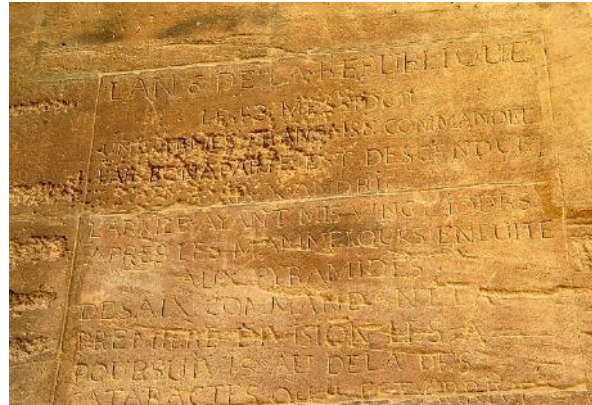 LAN 6 DE LA REPUBLIQUE
LE 13 MESSIDOR
UNE ARMEE FRANCAISE COMMANDEE
PAR BONAPARTE EST DESCENDUE
A ALEXANDRIE
L'ARMEE AYANT MIS VINGT JOURS
APRES LES MAMMELOUKS EN FUITE
AUX PYRAMIDES
DESAIX COMMANDANT LA
PREMIERE DIVISION LES A
POURSUIVIS AU DELA DES
CATARACTES OU IL EST